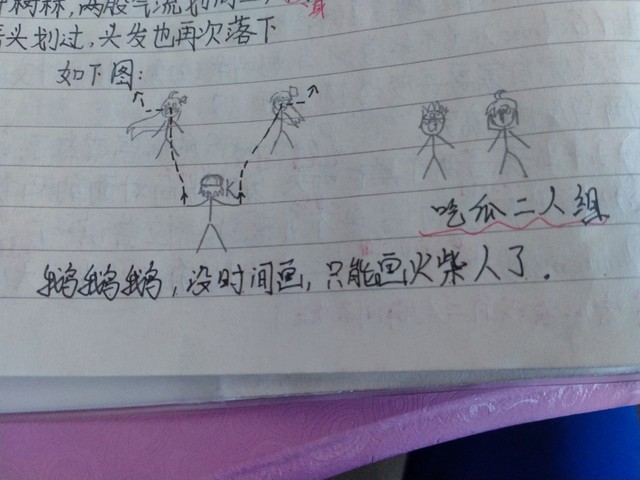 树林,两股气流划
头划过,头发也再次落下
如下图:
K
吃瓜二人组
鹅鹅鹅,没时间画,只能画火柴人了.